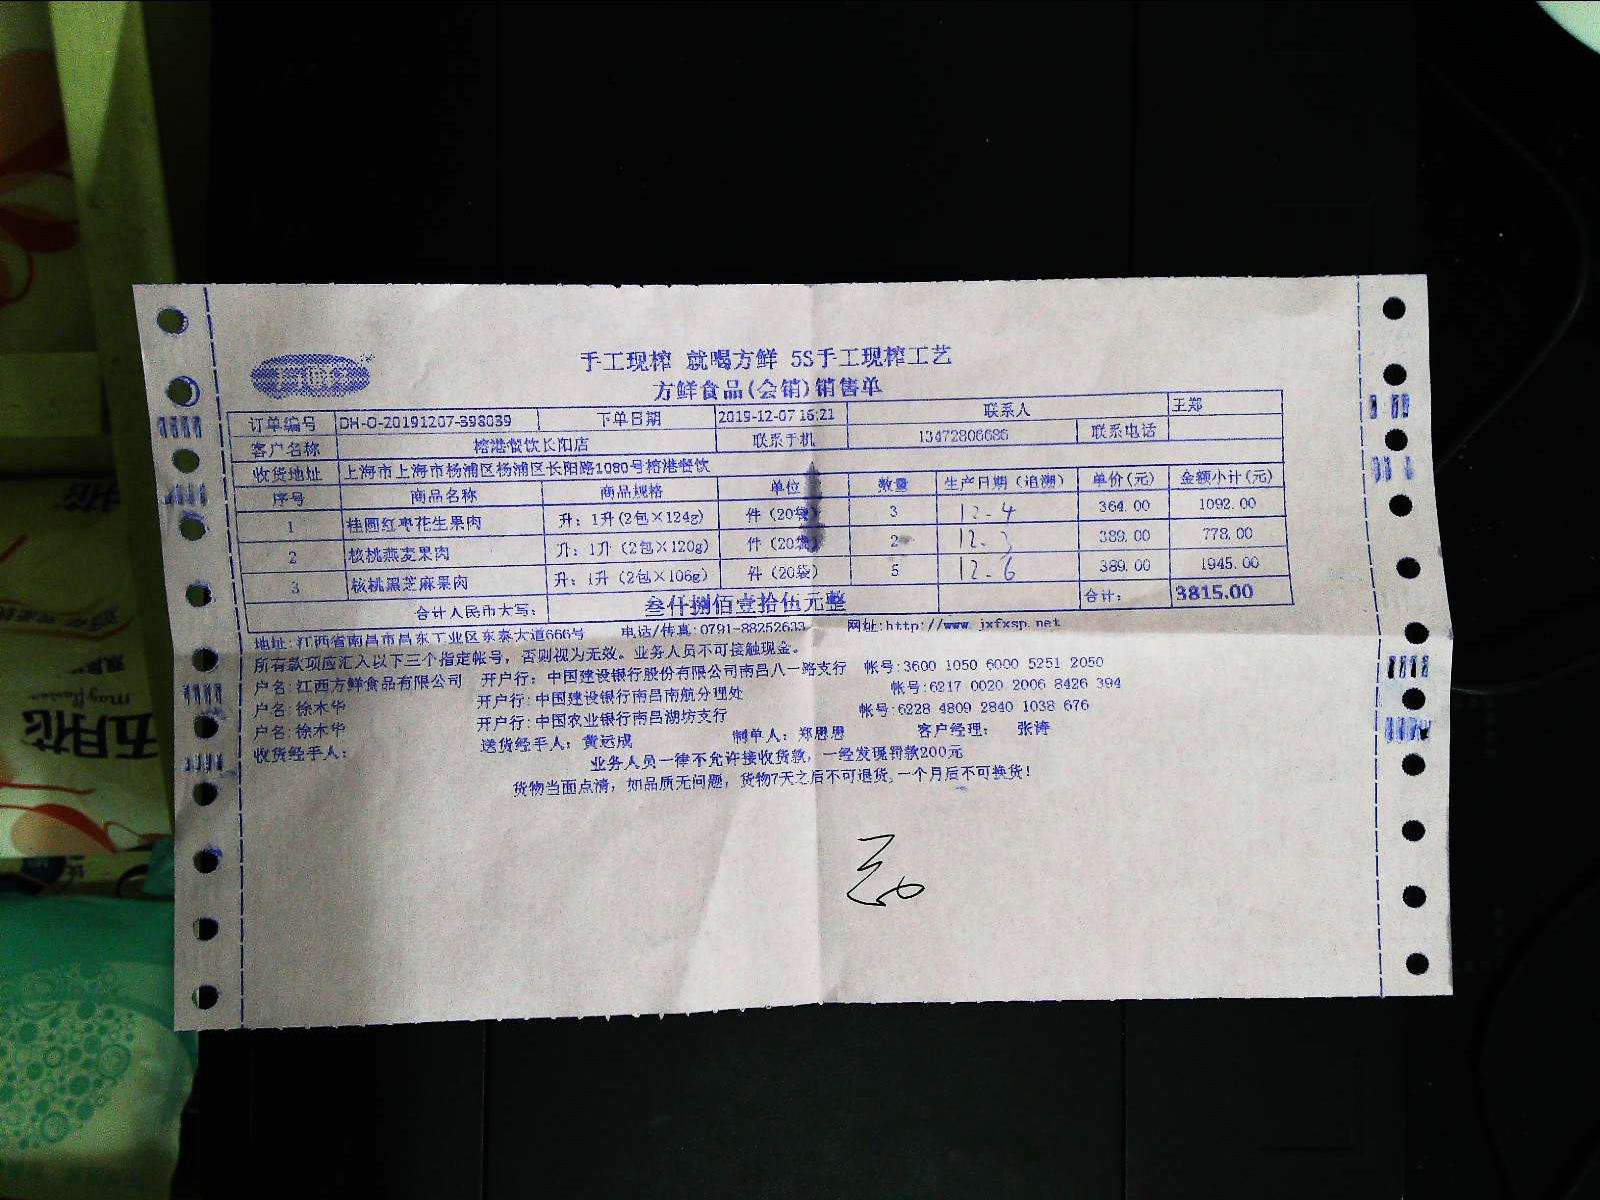 手工现榨 就喝方鲜 5S手工现榨工艺
方鲜食品(会销)销售单
订单编号 DH-O-20191207-398039 下单日期 2019-12-07 16:21 联系人 王郑
客户名称 榕港餐饮长阳店 联系手机 13472806686 联系电话
收货地址 上海市上海市杨浦区杨浦区长阳路1080号榕港餐饮
序号 商品名称 商品规格 单位 数量 生产日期（追溯） 单价(元) 金额小计(元)
1 桂圆红枣花生果肉 升：1升(2包×124g) 件（20袋） 3 12-4 364.00 1092.00
2 核桃燕麦果肉 升：1升（2包×120g） 件（20袋） 2 12-3 389.00 778.00
3 核桃黑芝麻果肉 升：1升（2包×106g） 件（20袋） 5 12-6 389.00 1945.00
合计人民币大写： 叁仟捌佰壹拾伍元整 合计： 3815.00
地址:江西省南昌市昌东工业区东泰大道666号 电话/传真:0791-88252633 网址:http://www.jxfxsp.net
所有款项应汇入以下三个指定帐号，否则视为无效。业务人员不可接触现金。
户名:江西方鲜食品有限公司 开户行：中国建设银行股份有限公司南昌八一路支行 帐号:3600 1050 6000 5251 2050
户名:徐木华 开户行:中国建设银行南昌南航分理处 帐号:6217 0020 2006 8426 394
户名:徐木华 开户行:中国农业银行南昌湖坊支行 帐号:6228 4809 2840 1038 676
收货经手人： 送货经手人：黄远成 制单人：郑恩恩 客户经理： 张涛
业务人员一律不允许接收货款，一经发现罚款200元
货物当面点清，如品质无问题，货物7天之后不可退货,一个月后不可换货！
五月花